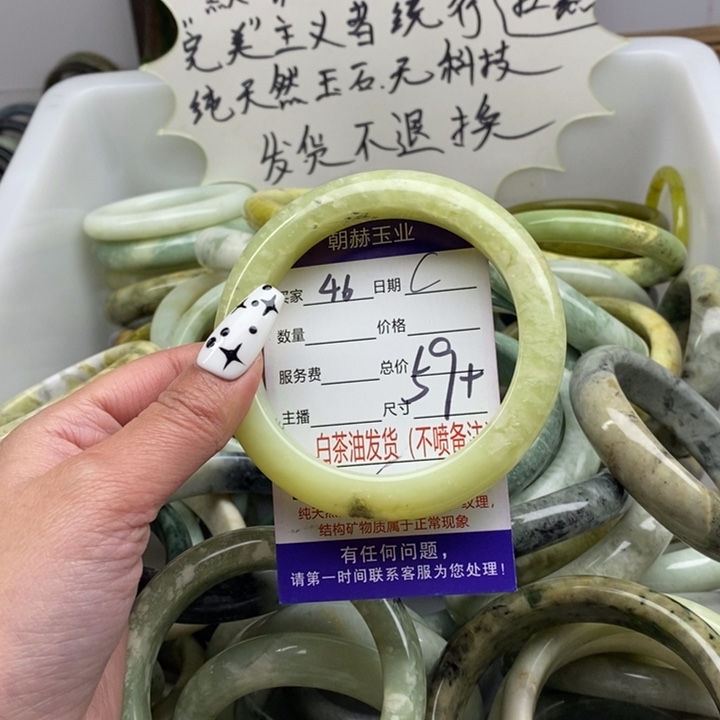 "完美"主义者绕行
纯天然玉石.无科技
发货不退换
朝赫玉业
买家 46 日期
数量 价格
服务费 总价 19
主播 尺寸 57+
白茶油发货(不喷备注
纹理,
结构矿物质属于正常现象
有任何问题,
请第一时间联系客服为您处理!